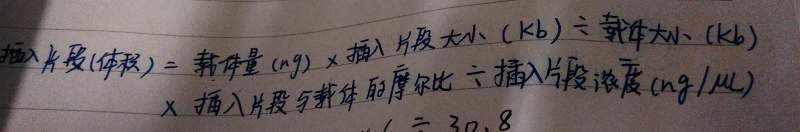 插入片段(体积) = 载体量(ng) × 插入片段大小(Kb) ÷ 载体大小(Kb)
× 插入片段与载体的摩尔比 ÷ 插入片段浓度(ng/μL)
÷ 30.8